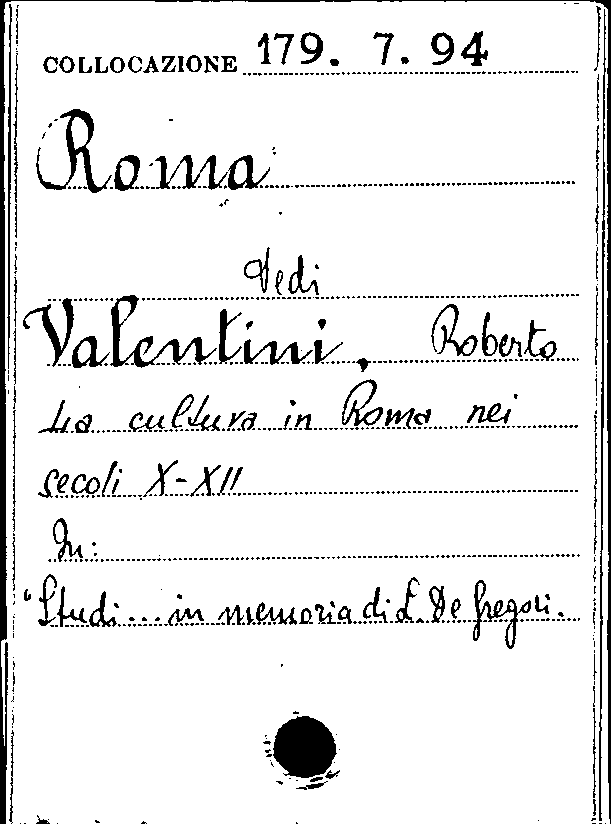 COLLOCAZIONE 179. 7. 94
Roma
Vedi
Valentini, Roberto
La cultura in Roma nei
secoli X-XII
In:
"Studi... in memoria di L. De Gregori.